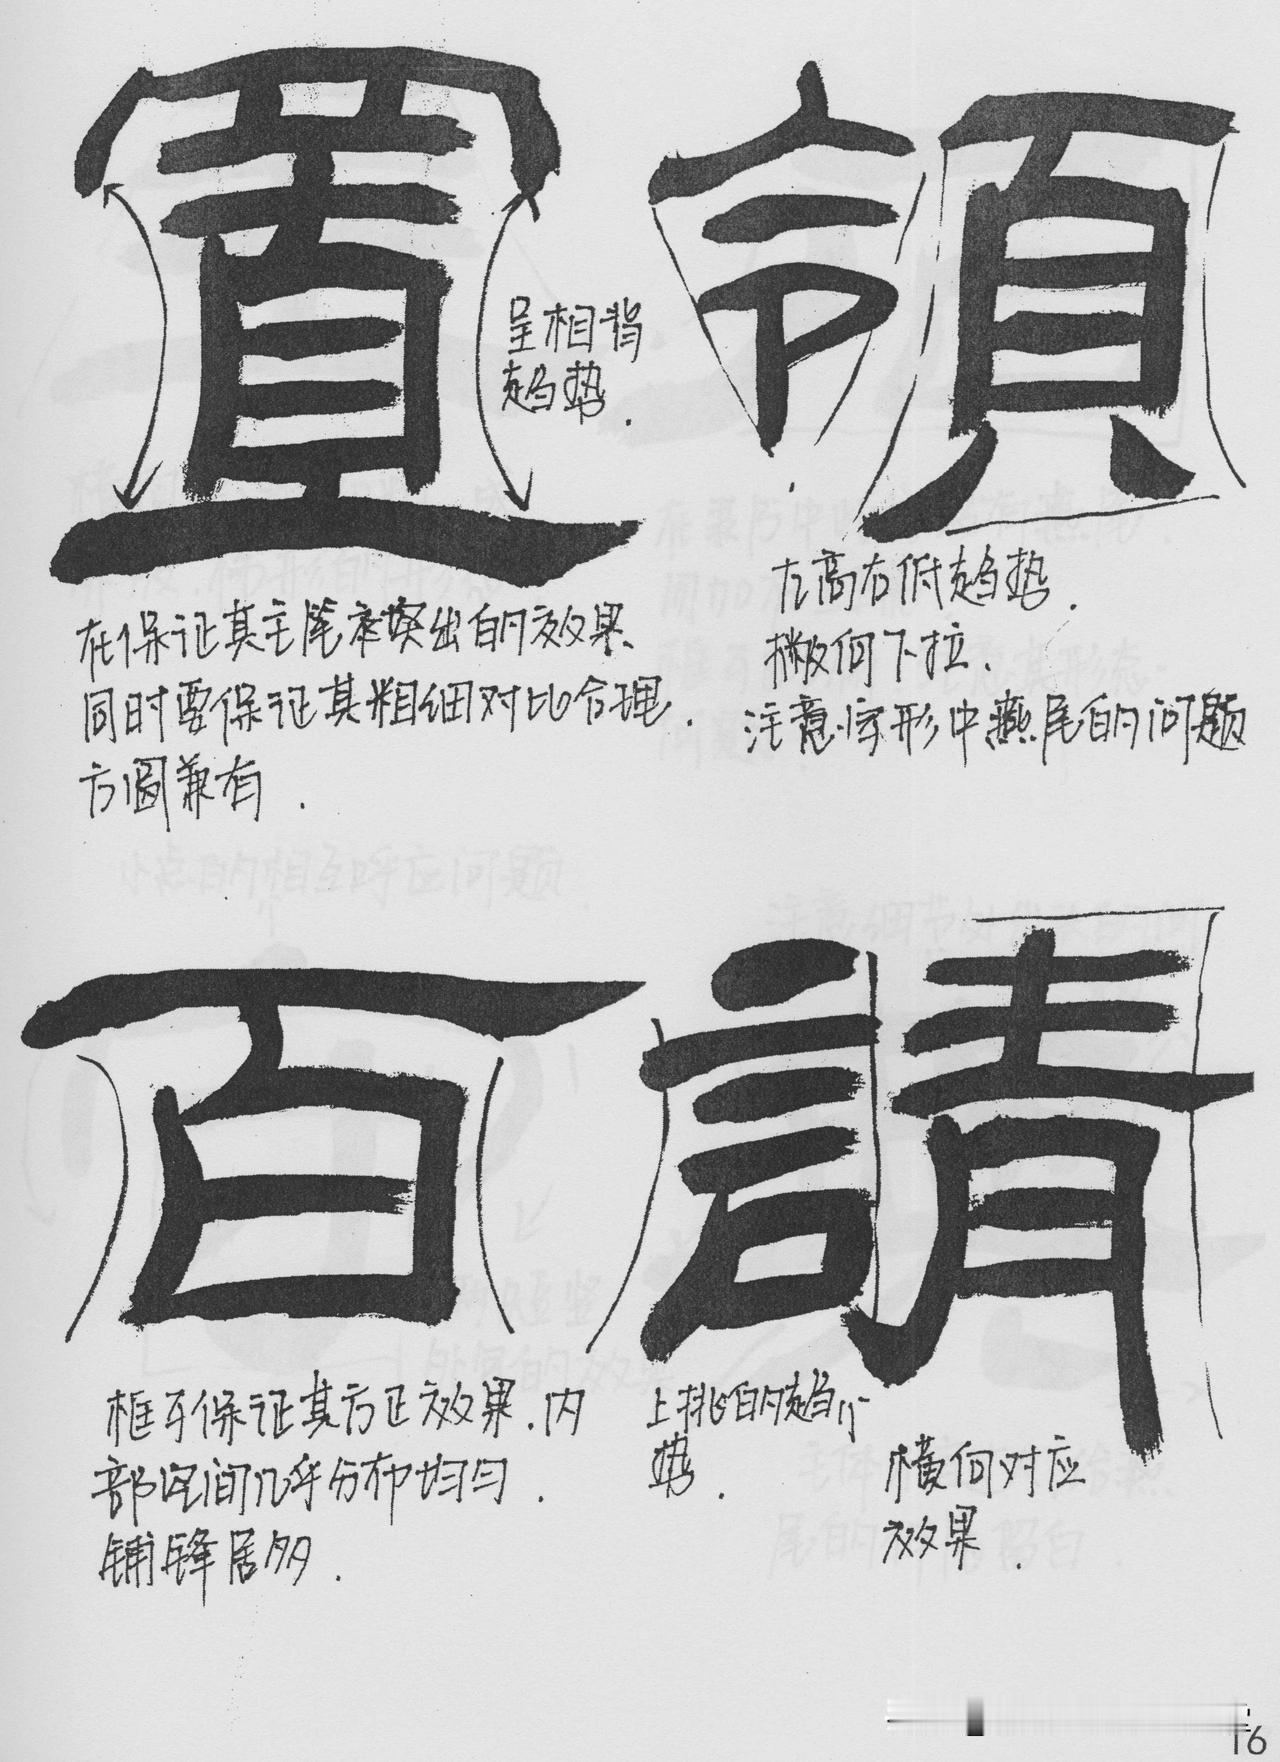 置
領
呈相背
趋势.
在保证其主笔突出的效果、
同时要保证其粗细对比合理.
方圆兼有.
左高右低趋势.
撇何下拉.
注意字形中燕尾的问题
百
請
框子保证其方正效果.内
部空间几乎分布均匀.
铺锋居多.
上挑的趋
势.
横向对应
效果.
16